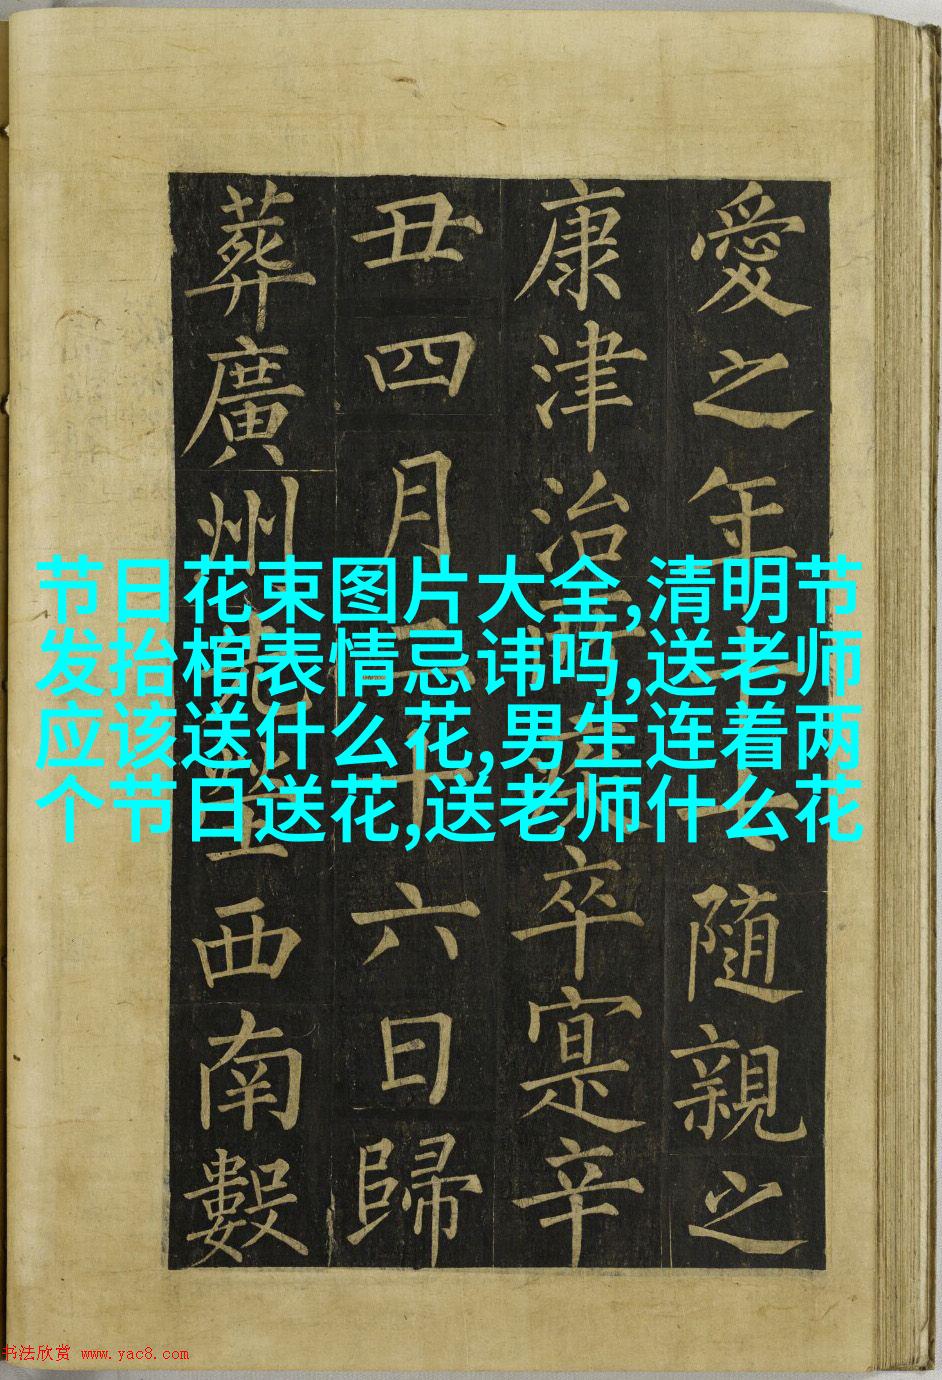 愛之年隨親之
康津治平卒寔辛
丑四月二十六日歸
葬廣州西南數
节日花束图片大全,清明节
发抬棺表情忌讳吗,送老师
应该送什么花,男生连着两
个节日送花,送老师什么花
书法欣赏 www.yac8.com